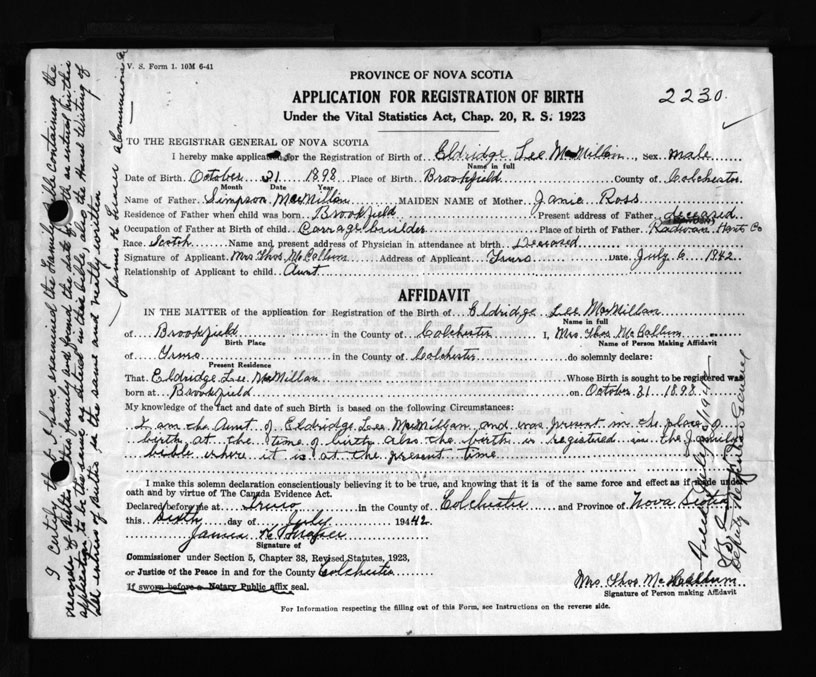 V. S. Form 1. 10M 6-41
PROVINCE OF NOVA SCOTIA
APPLICATION FOR REGISTRATION OF BIRTH
2230
Under the Vital Statistics Act, Chap. 20, R. S. 1923
TO THE REGISTRAR GENERAL OF NOVA SCOTIA
I hereby make application for the Registration of Birth of Eldridge Lee MacMillan, Sex male
Name in full
Date of Birth October 31 1898 Place of Birth Brookfield County of Colchester
Month Date Year
Name of Father Simpson MacMillan MAIDEN NAME of Mother Janie Ross
Residence of Father when child was born Brookfield Present address of Father deceased
Occupation of Father at Birth of child Carragebuilder Place of birth of Father Hants Co
Race Scotch Name and present address of Physician in attendance at birth Deceased
Signature of Applicant Mrs Thos McCallum Address of Applicant Truro Date July 6 1942
Relationship of Applicant to child Aunt
AFFIDAVIT
IN THE MATTER of the application for Registration of the Birth of Eldridge Lee MacMillan
Name in full
of Brookfield in the County of Colchester I, Mrs Thos McCallum
Birth Place Name of Person Making Affidavit
of Truro in the County of Colchester do solemnly declare:
Present Residence
That Eldridge Lee MacMillan Whose Birth is sought to be registered was
born at Brookfield on October 31 1898
My knowledge of the fact and date of such Birth is based on the following Circumstances:
I am the Aunt of Eldridge Lee MacMillan and was present in the place of
birth at the time of birth also the birth is registered in the family
bible where it is at the present time
I make this solemn declaration conscientiously believing it to be true, and knowing that it is of the same force and effect as if made under
oath and by virtue of The Canada Evidence Act.
Declared before me at Truro in the County of Colchester and Province of Nova Scotia
this Sixth day of July 19442
James
Signature of
Commissioner under Section 5, Chapter 38, Revised Statutes, 1923,
or Justice of the Peace in and for the County Colchester
If sworn before a Notary Public affix seal.
Mrs Thos McCallum
Signature of Person making Affidavit
For Information respecting the filling out of this Form, see Instructions on the reverse side.
I certify that I have examined the Family Bible Containing the
record of Births of this family and found the date of birth as entered on this
application to be the same as entered in this bible, also the Hand Writing of
the entries of births is the same and neatly written
James a Commissioner
Deputy